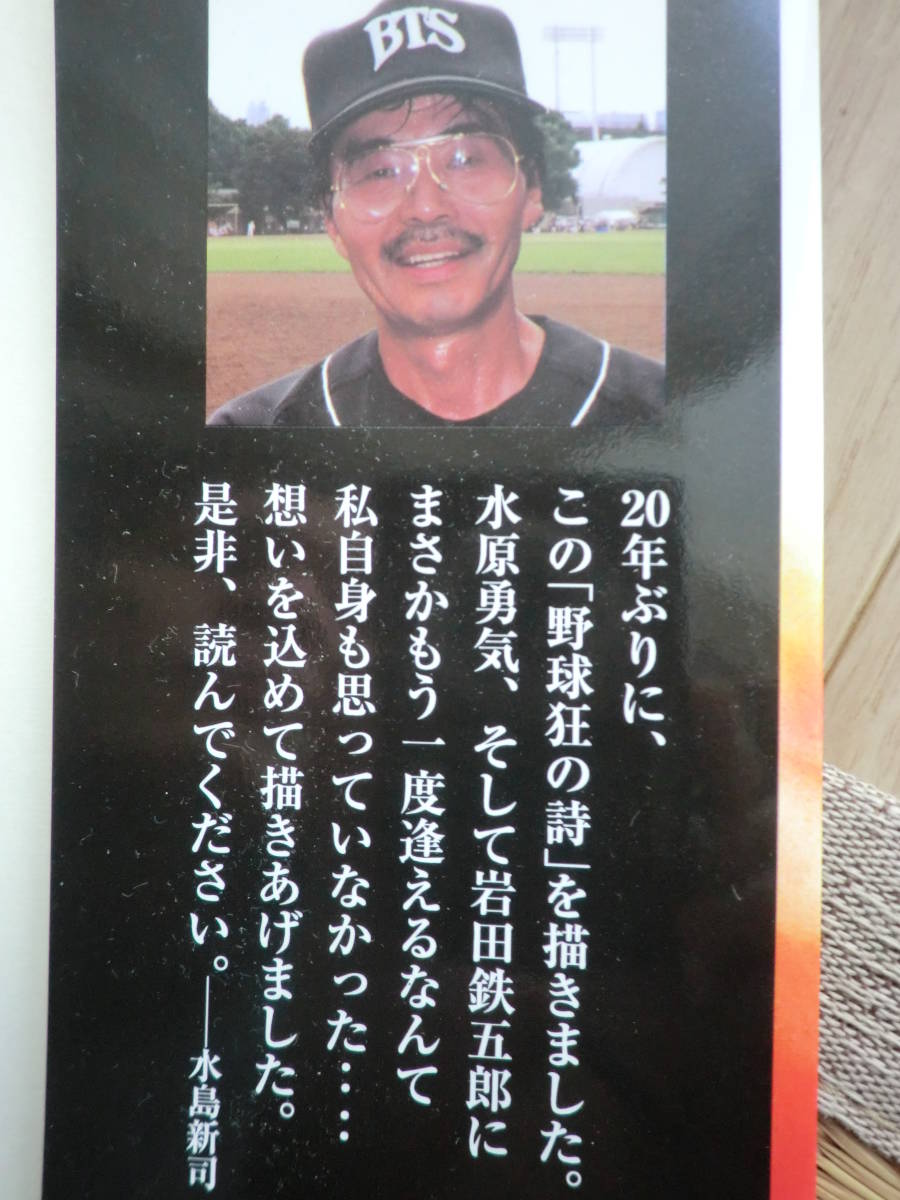 BTS
20年ぶりに、
この「野球狂の詩」を描きました。
水原勇気、そして岩田鉄五郎に
まさかもう一度逢えるなんて
私自身も思っていなかった‥‥
想いを込めて描きあげました。
是非、読んでください。——水島新司